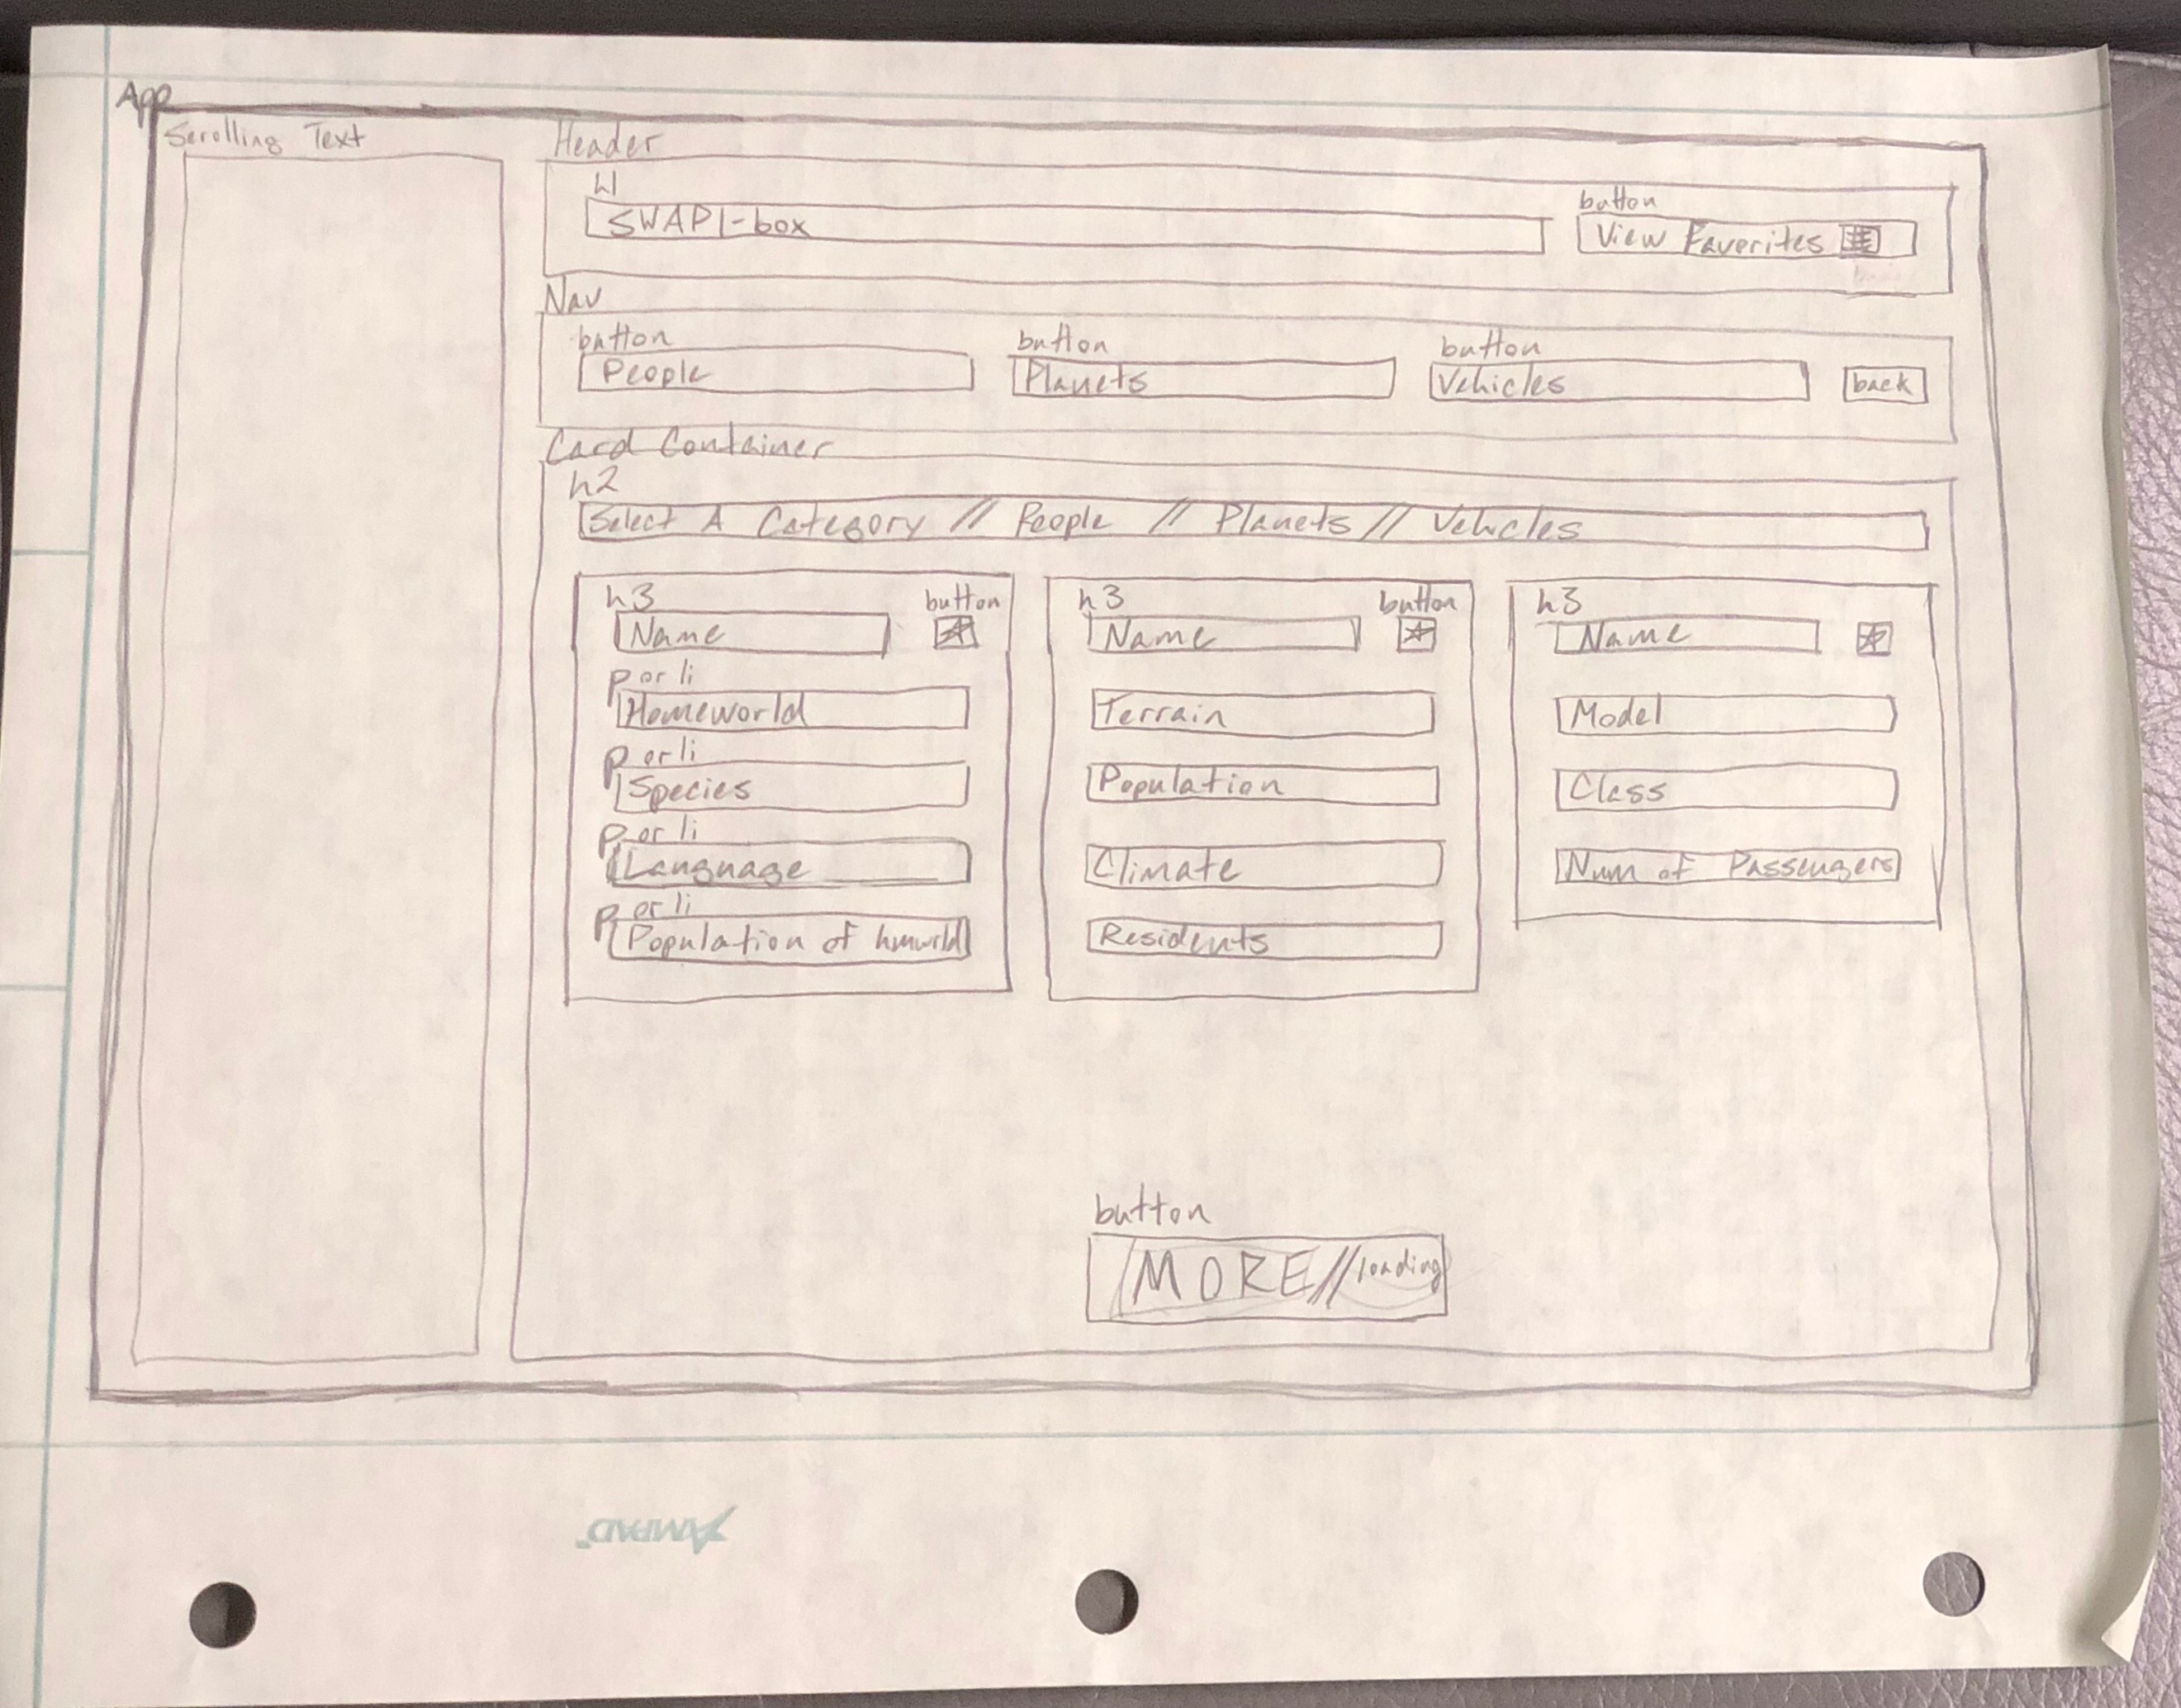 App
Scrolling Text
Header
h1
SWAPI-box
button
View Favorites
Nav
button
People
button
Planets
button
Vehicles
back
Card Container
h2
Select A Category // People // Planets // Vehicles
h3
button
Name
p or li
Homeworld
p or li
Species
p or li
Language
p or li
Population of hmwrld
h3
button
Name
Terrain
Population
Climate
Residents
h3
Name
Model
Class
Num of Passengers
button
MORE//loading
AMPAD